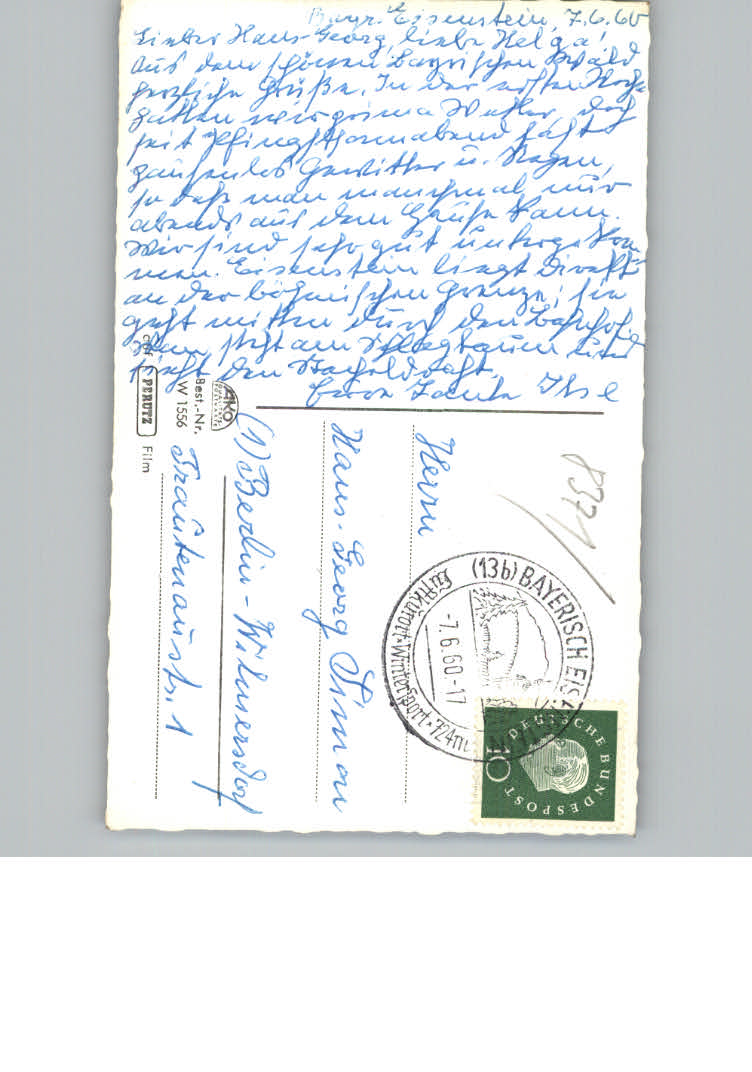 Bayr. Eisenstein, 7.6.60
Lieber Hans-Georg, liebe Helga!
Aus dem schönen Bayrischen Wald
herzliche Grüße. In der ersten Woche
hatten wir prima Wetter, doch
seit Pfingstsonnabend fast
pausenlos Gewitter u. Regen,
so daß man manchmal nur
abends aus dem Hause kann.
Wir sind sehr gut untergekom
men. Eisenstein liegt direkt
an der böhmischen Grenze; sie
geht mitten durch den Bahnhof.
Man steht am Schlagbaum und
sieht den
Eure Tante Ilse
auf PERUTZ Film
AKO
Best.-Nr.
W 1556
Herrn
Hans-Georg Simon
(1) Berlin-Wilmersdorf
Trautenaustr. 1
8371
(13b) BAYERISCH EIS
-7.6.60-17
Luftkurort · Wintersport · 724m
DEUTSCHE BUNDESPOST
10